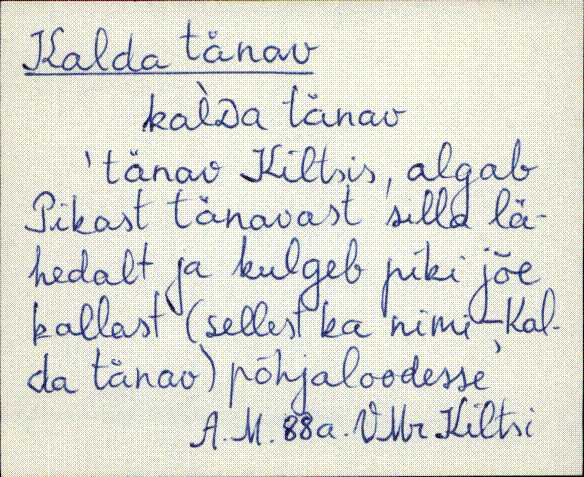 Kalda tänav
kal̀Da tänav
'tänav Kiltsis, algab
Pikast tänavast silla lä-
hedalt ja kulgeb piki jõe
kallast (sellest ka nimi - Kal-
da tänav) põhjaloodesse'
A. M. 88a. VMr Kiltsi